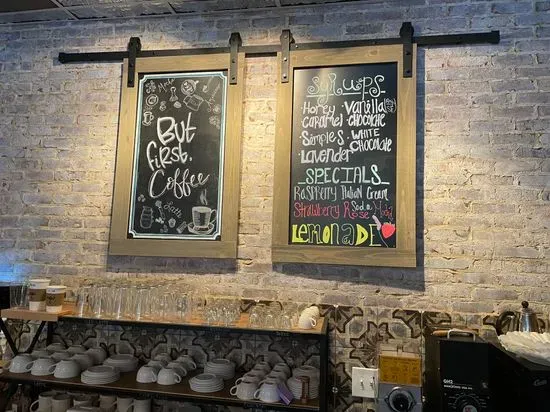 Mocha
But
first,
Coffee
Latte
SYRUPS
Honey Vanilla
CARAMEL CHOCOLATE
SIMPLE S. WHITE
CHOCOLATE
LAVENDER
SPECIALS
Raspberry Italian Cream
Strawberry Rose
LEMONADE